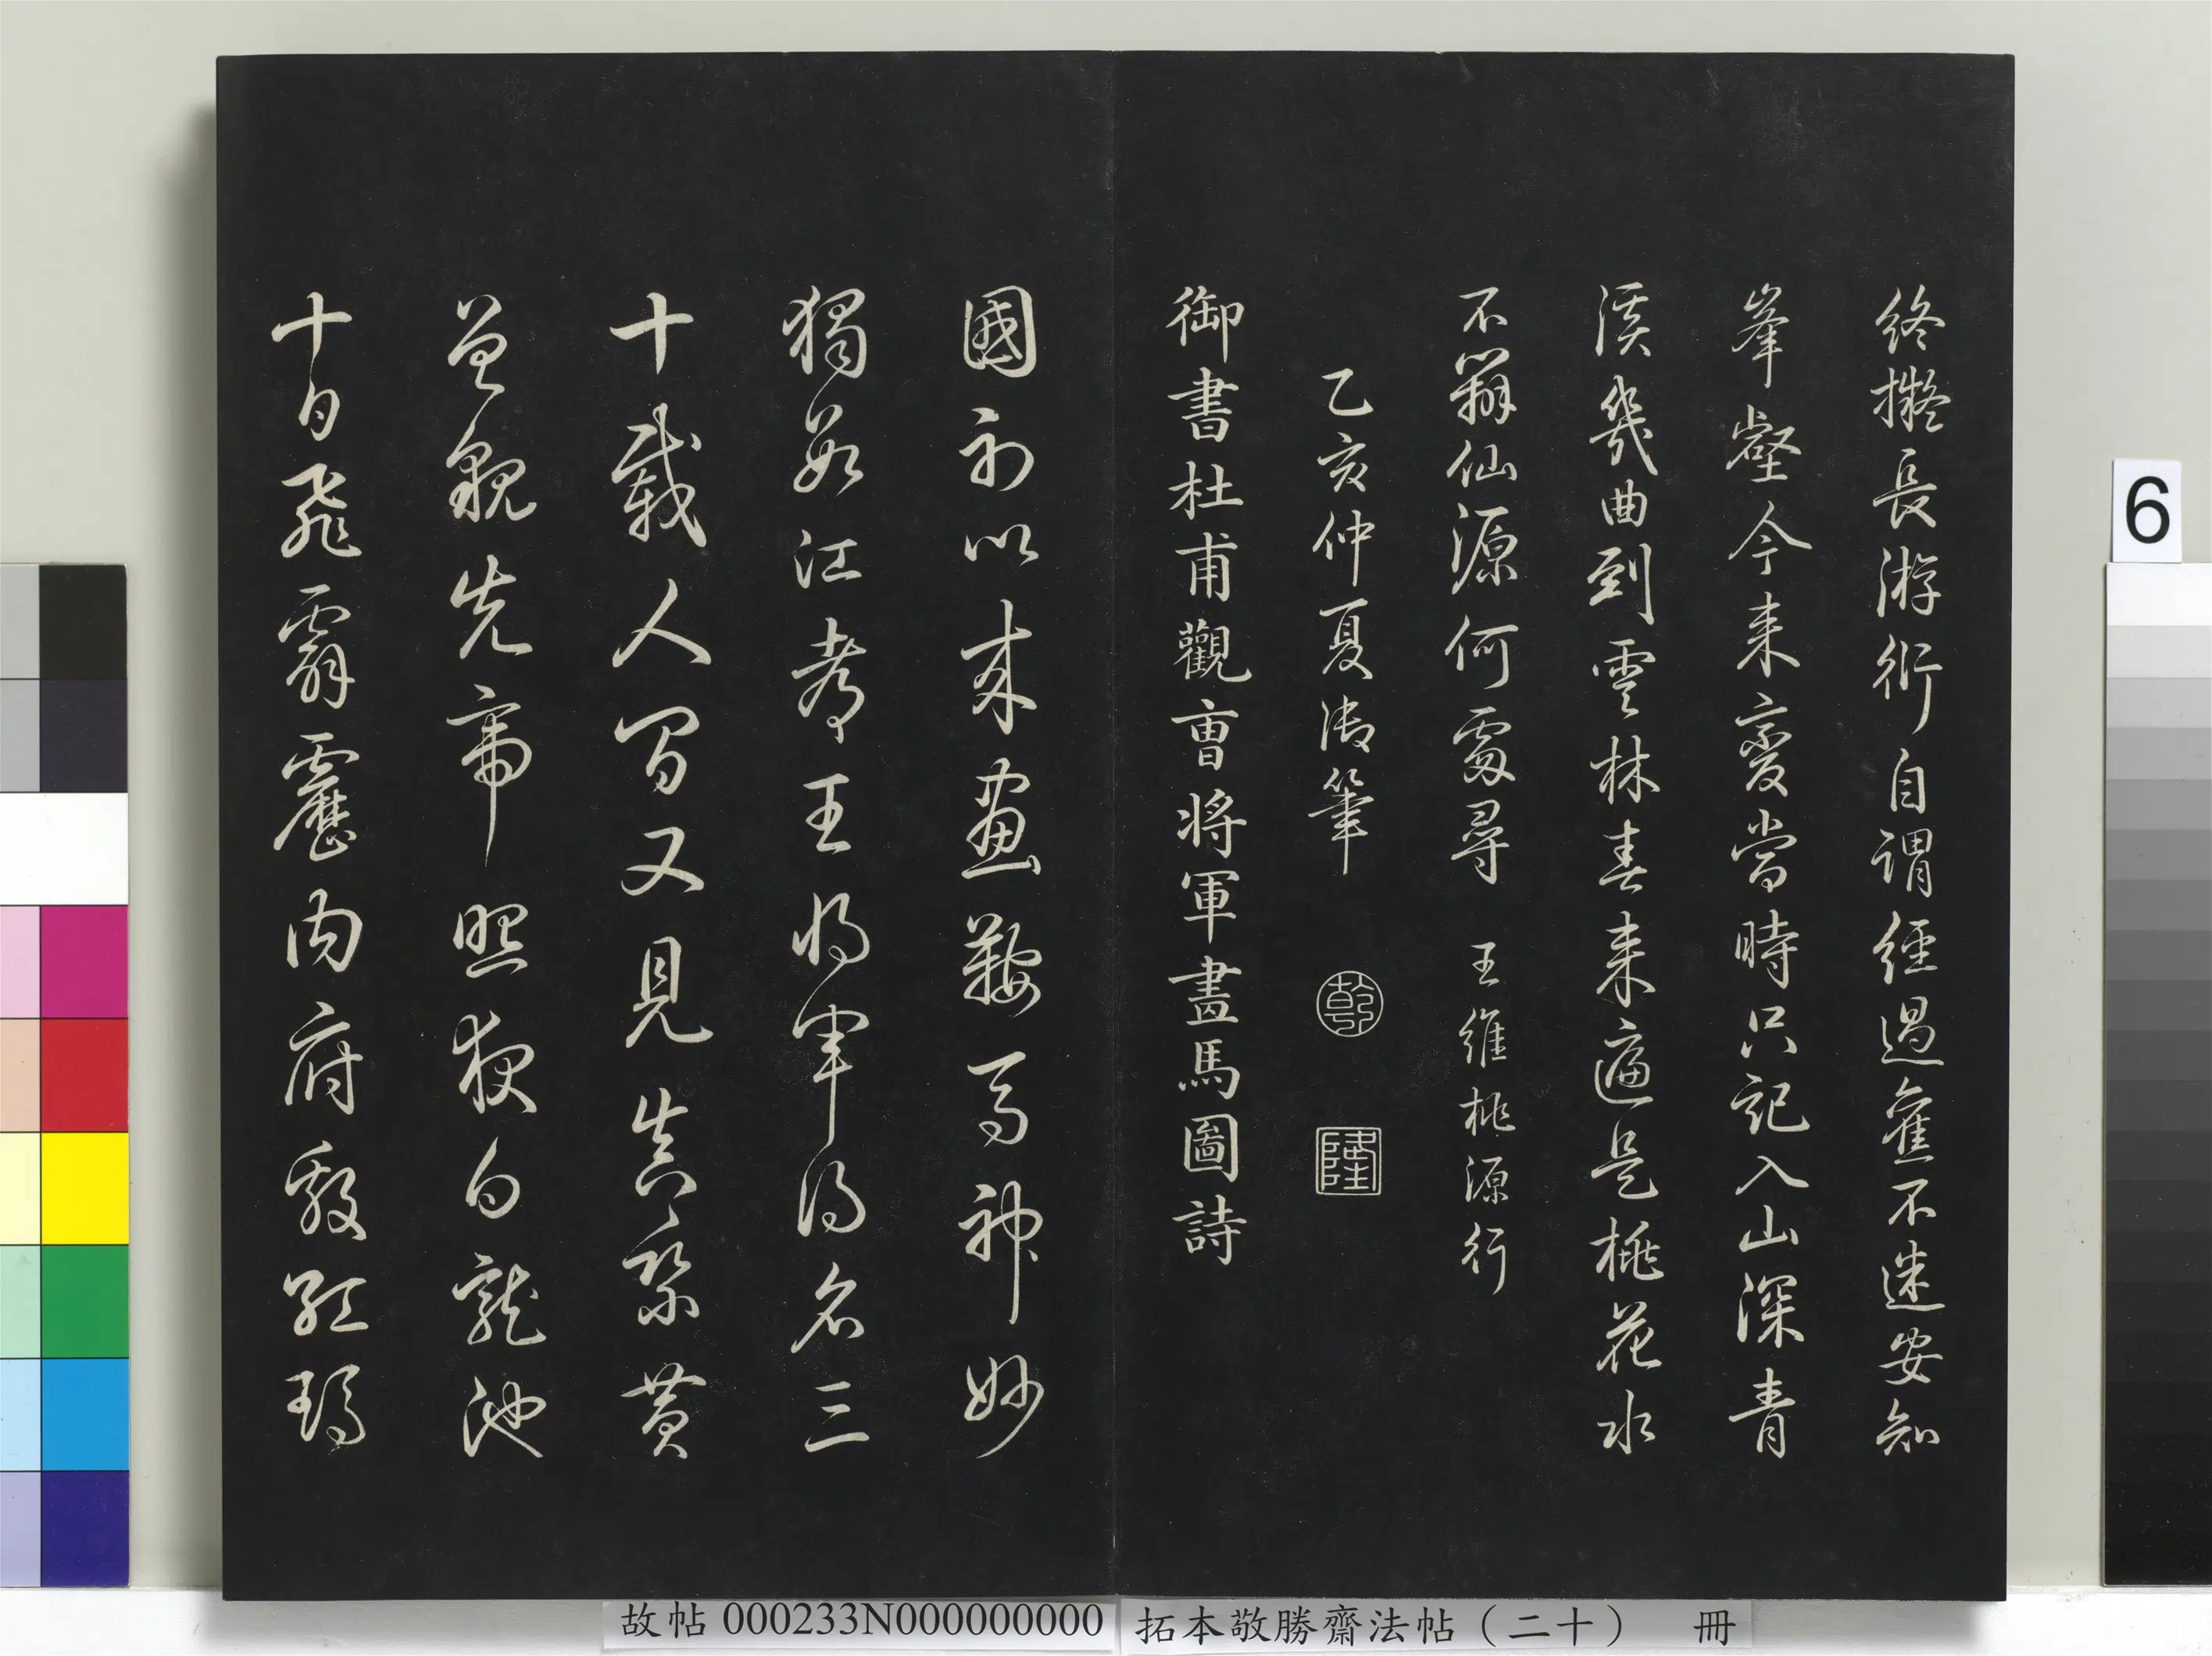 終擬長游衍自謂經過舊不迷安知
峯壑今来變當時只記入山深青
溪幾曲到雲林春来遍是桃花水
不辨仙源何處尋 王維桃源行
乙亥仲夏御筆 乾 隆
御書杜甫觀曹將軍畫馬圖詩
國初以来畫鞍馬神妙
獨數江都王將軍得名三
十載人間又見真乘黃
曾貌先帝照夜白龍池
十日飛霹靂內府殷紅瑪
6
故帖000233N000000000 拓本敬勝齋法帖（二十） 冊